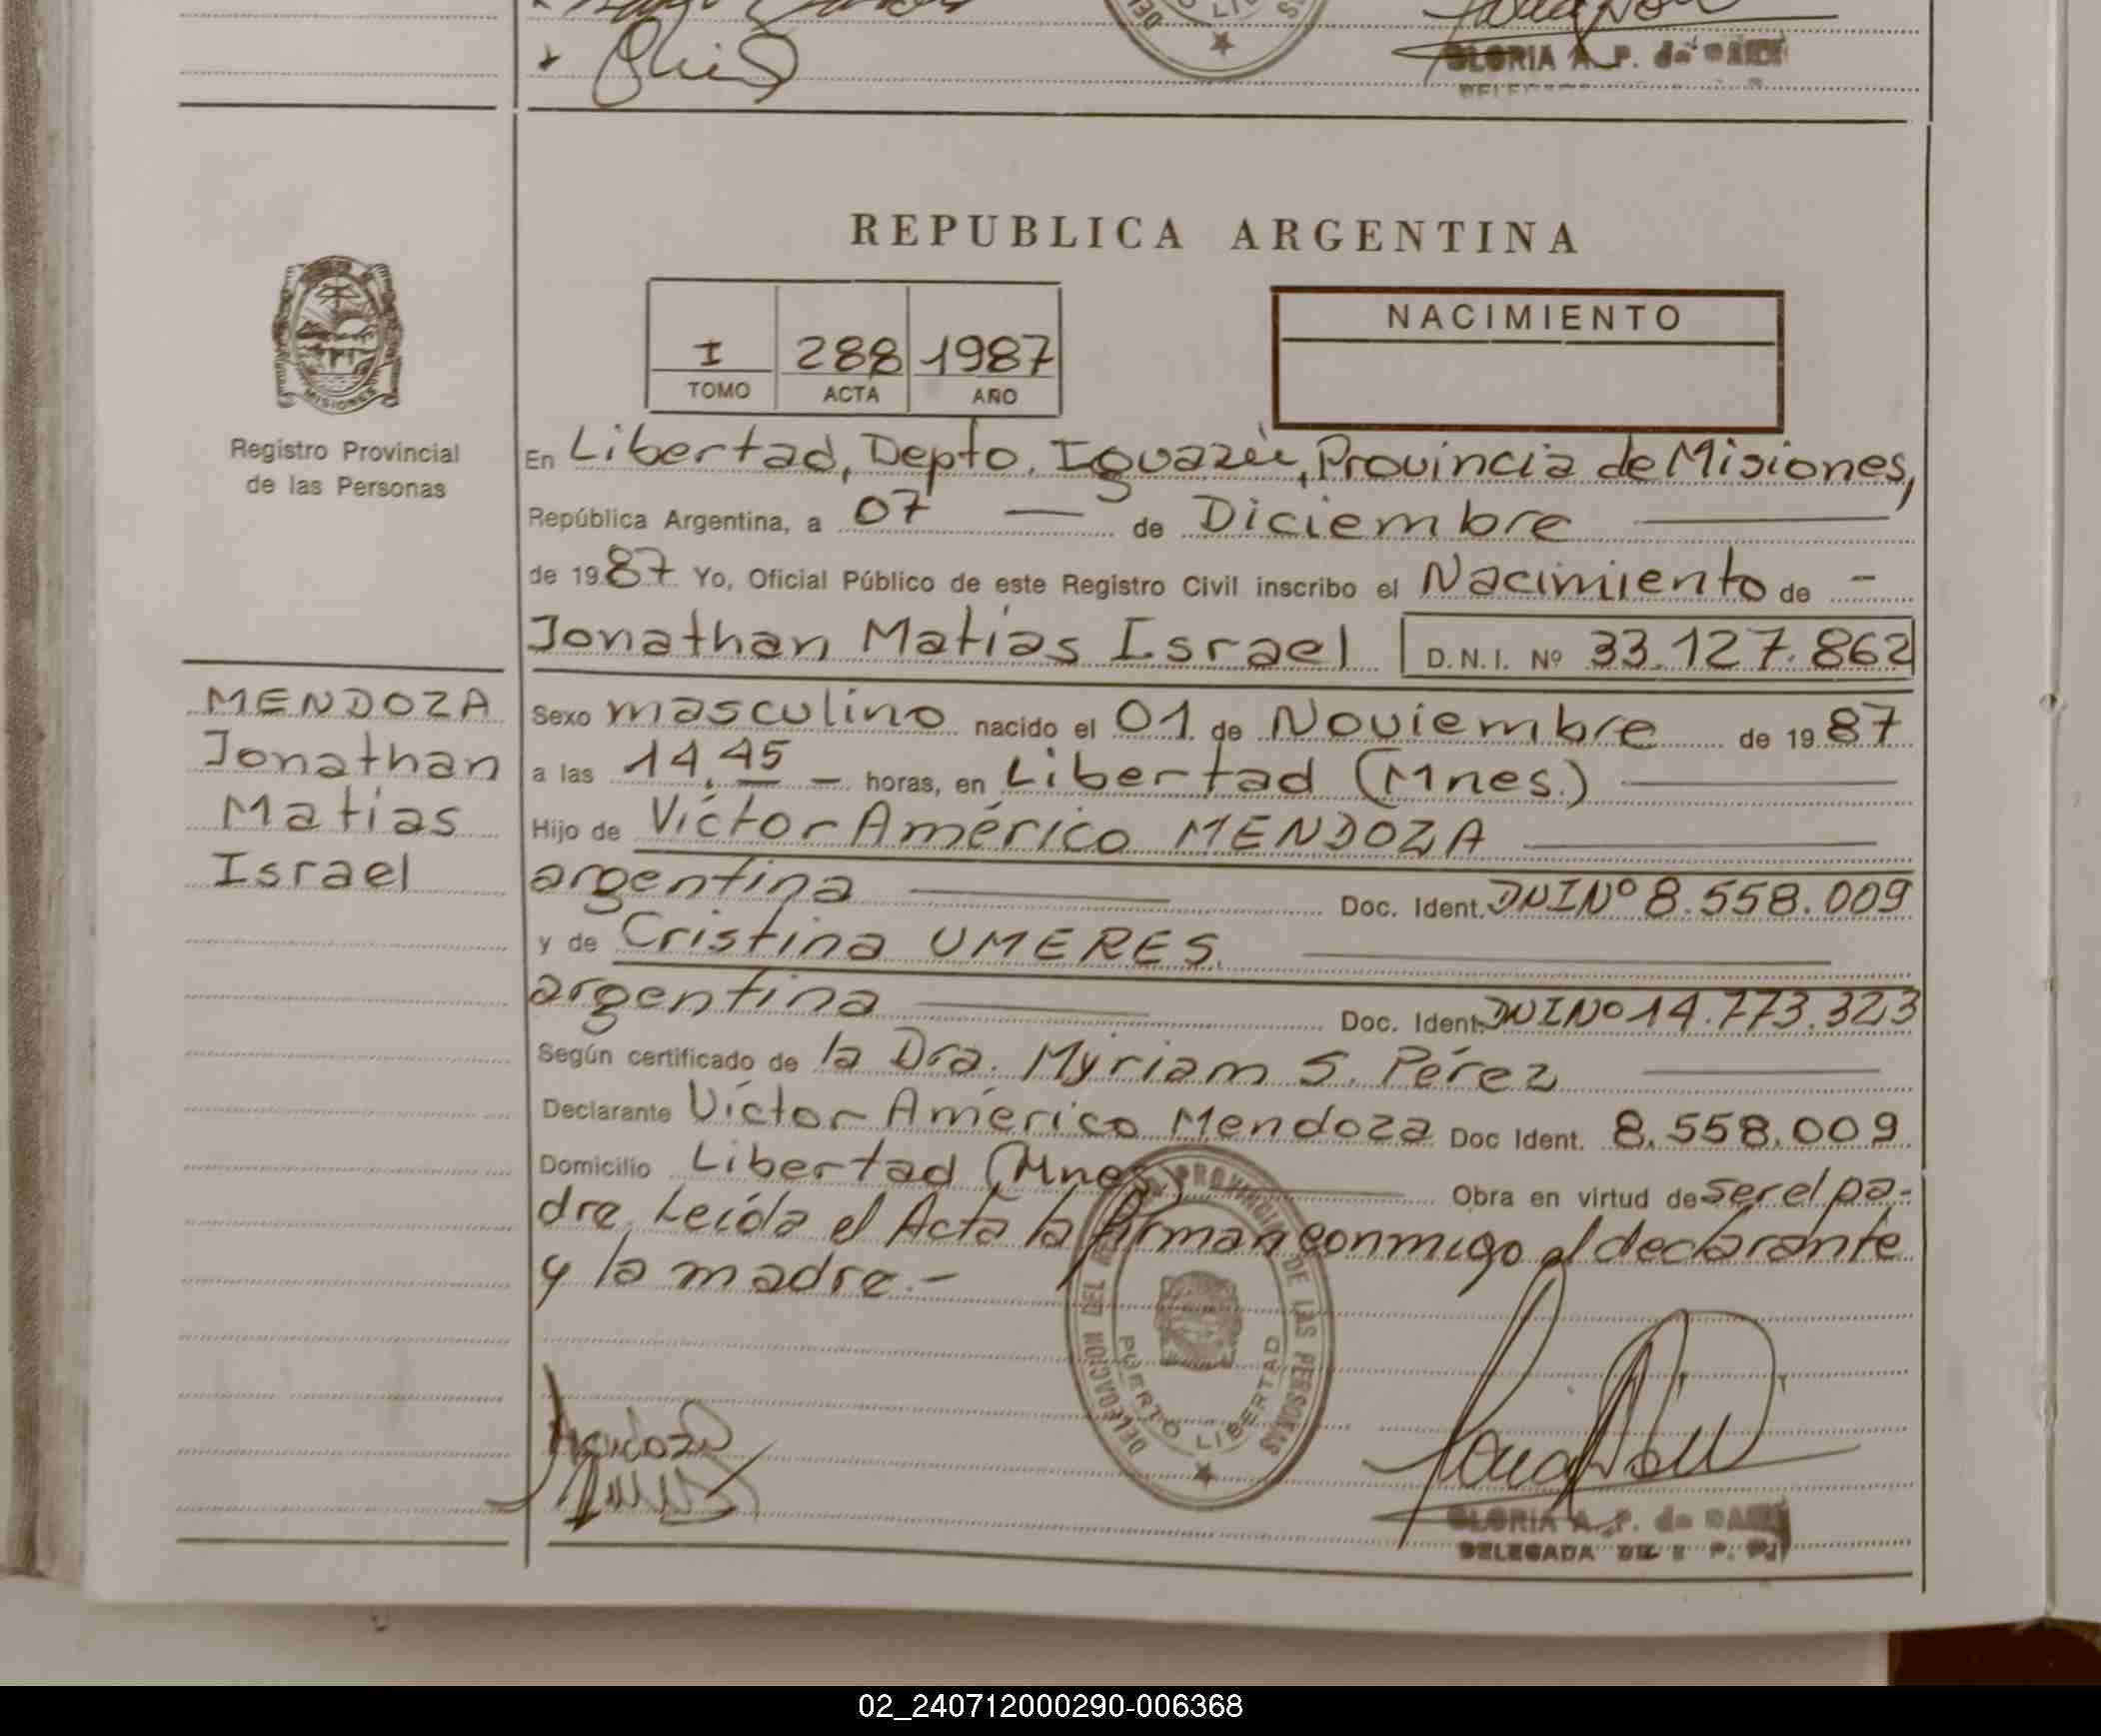 GLORIA A. P. de
REPUBLICA ARGENTINA
I 288 1987
TOMO ACTA AÑO
NACIMIENTO
MISIONES
Registro Provincial
de las Personas
En Libertad, Depto. Iguazú, Provincia de Misiones,
República Argentina, a 07 — de Diciembre —
de 1987 Yo, Oficial Público de este Registro Civil inscribo el Nacimiento de -
Jonathan Matías Israel D.N.I. Nº 33.127.862
MENDOZA
Jonathan
Matías
Israel
Sexo masculino nacido el 01 de Noviembre de 1987
a las 14,45 — horas, en Libertad (Mnes.) —
Hijo de Víctor Américo MENDOZA —
argentina — Doc. Ident. DNI Nº 8.558.009
y de Cristina UMERES. —
argentina — Doc. Ident. DNI Nº 14.773.323
Según certificado de la Dra. Myriam S. Pérez —
Declarante Víctor Américo Mendoza Doc Ident. 8.558.009
Domicilio Libertad (Mnes.) — Obra en virtud de ser el pa-
dre. Leída el Acta la firman conmigo el declarante
y la madre.-
DELEGACION DEL PROVINCIAL DE LAS PERSONAS
PUERTO LIBERTAD
Mendoza
GLORIA A. P. de
DELEGADA
02_240712000290-006368